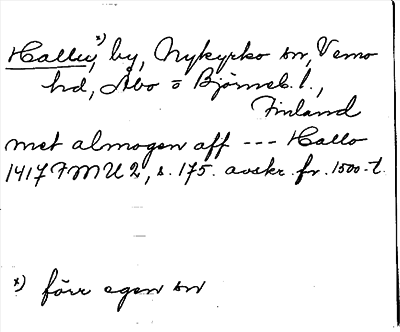 Hallu, x)
by, Nykyrko sn, Vemo
hd, Åbo o Björneb. l.,
Finland
met almogen aff --- Hallo
1417 FMU 2, s. 175. avskr. fr. 1500-t.
x) förr egen sn